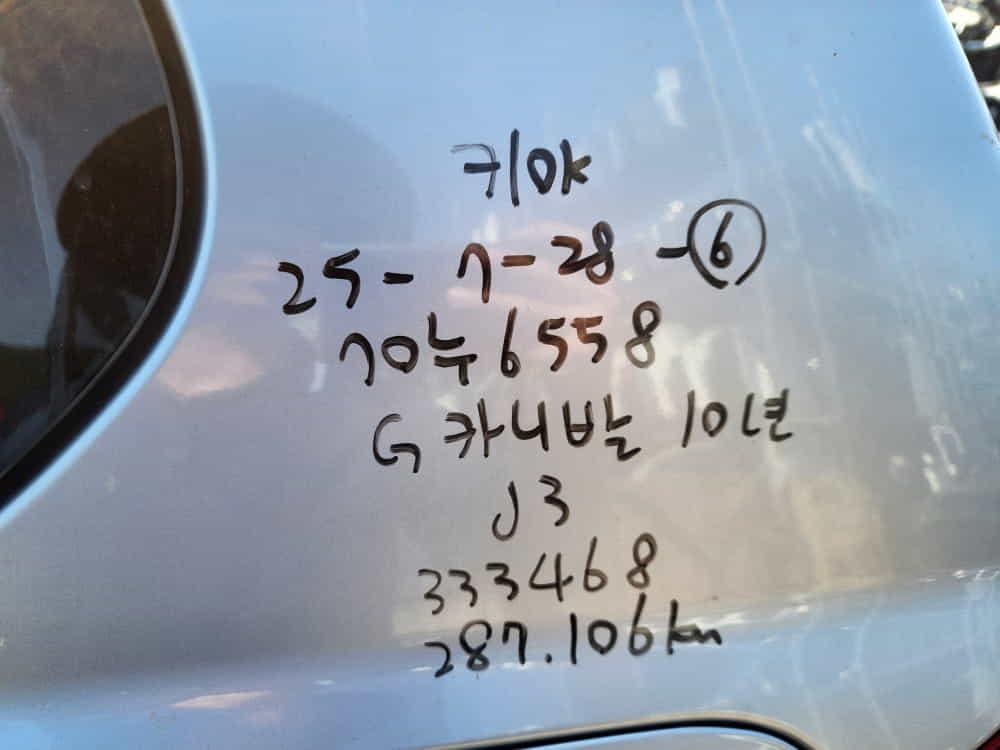 키OK
25-7-28-⑥
70누6558
G카니발 10년
J3
333468
287.106km